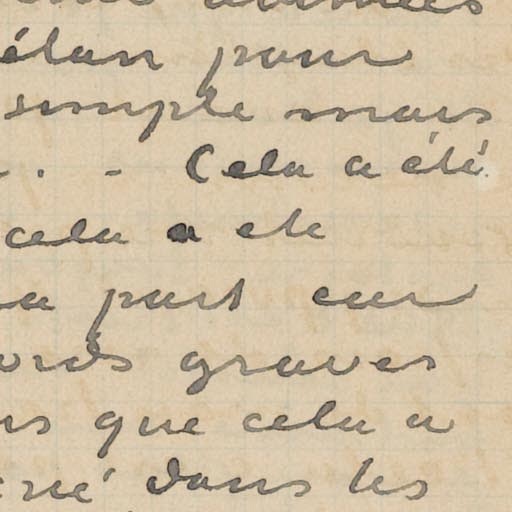 élan pour
simple mais
. - Cela a été
cela a ete
part car
graves
que cela a
dans les